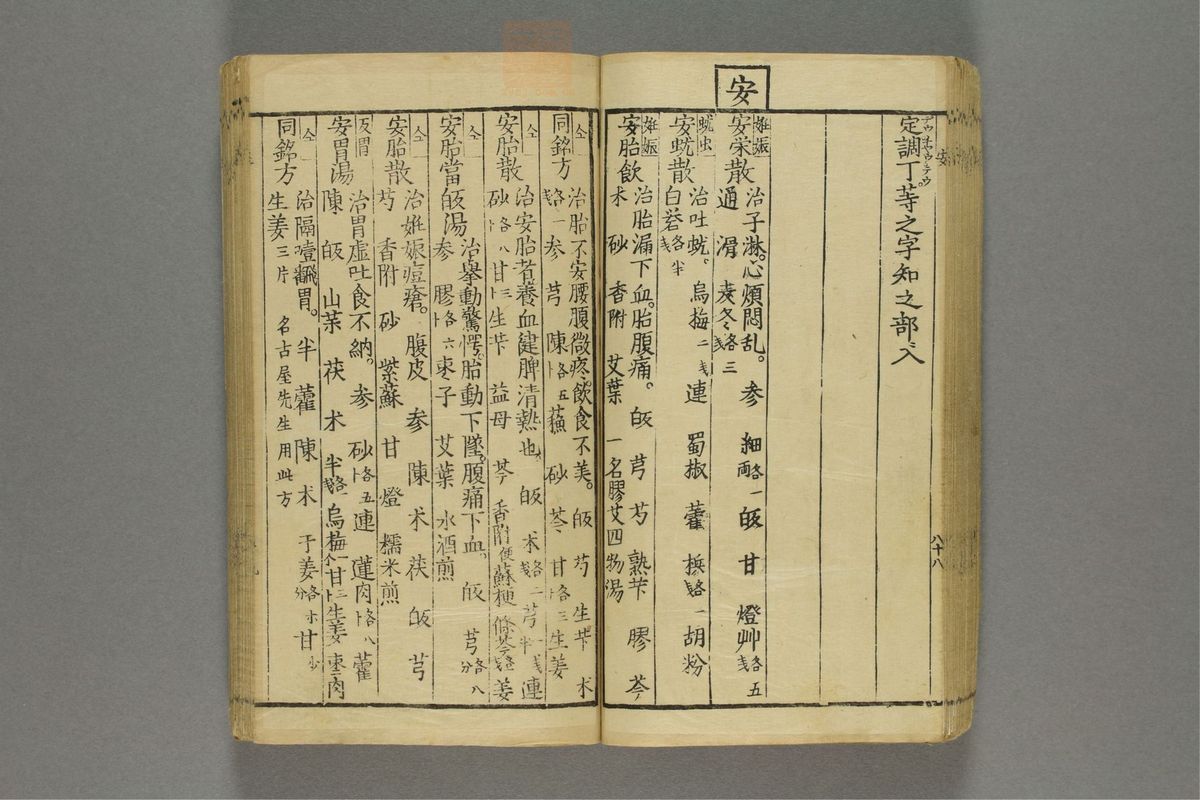 定調丁等之字知之部ヘ入
安
八十八
安
妊娠
安栄散 治子淋。心煩悶乱。 参 細各一両 皈 甘 燈艸各五戔
通 滑 麦冬各三戔
蚘虫
安蚘散 治吐蚘。 烏梅二戔 連 蜀椒 藿 梹各一戔 胡粉
白礬各半戔
妊娠
安胎飲 治胎漏下血。胎腹痛。 皈 芎 芍 熟芐 膠 芩
术 砂 香附 艾葉 一名膠艾四物湯
仝
同銘方 治胎不安腰腹微疼。飲食不美。 皈 芍 生芐 术
各一戔 参 芎 陳各五卜 蘓 砂 芩 甘各三卜 生姜
仝
安胎散 治安胎者養血健脾清熱也。 皈 术各二戔 芎一戔半 連
砂各八卜 甘三卜 生芐 益母 芩 香附便 蘇梗 條芩各戔 姜
仝
安胎當皈湯 治擧動驚愕。胎動下墜。腹痛下血。 皈 芎各八分
参 膠各六卜 枣子 艾葉 水酒煎
仝
安胎散 治妊娠痘瘡。 腹皮 参 陳 术 茯 皈 芎
芍 香附 砂 紫蘇 甘 燈 糯米煎
反胃
安胃湯 治胃虚吐食不納。 参 砂各五卜 連 蓮肉各八卜 藿
陳 皈 山 茱 茯 术 半各一戔 烏梅一个 甘三卜 生姜 枣二肉
仝
同銘方 治隔噎飜胃。 半 藿 陳 术 于姜各分 甘少
生姜三片 名古屋先生用此方